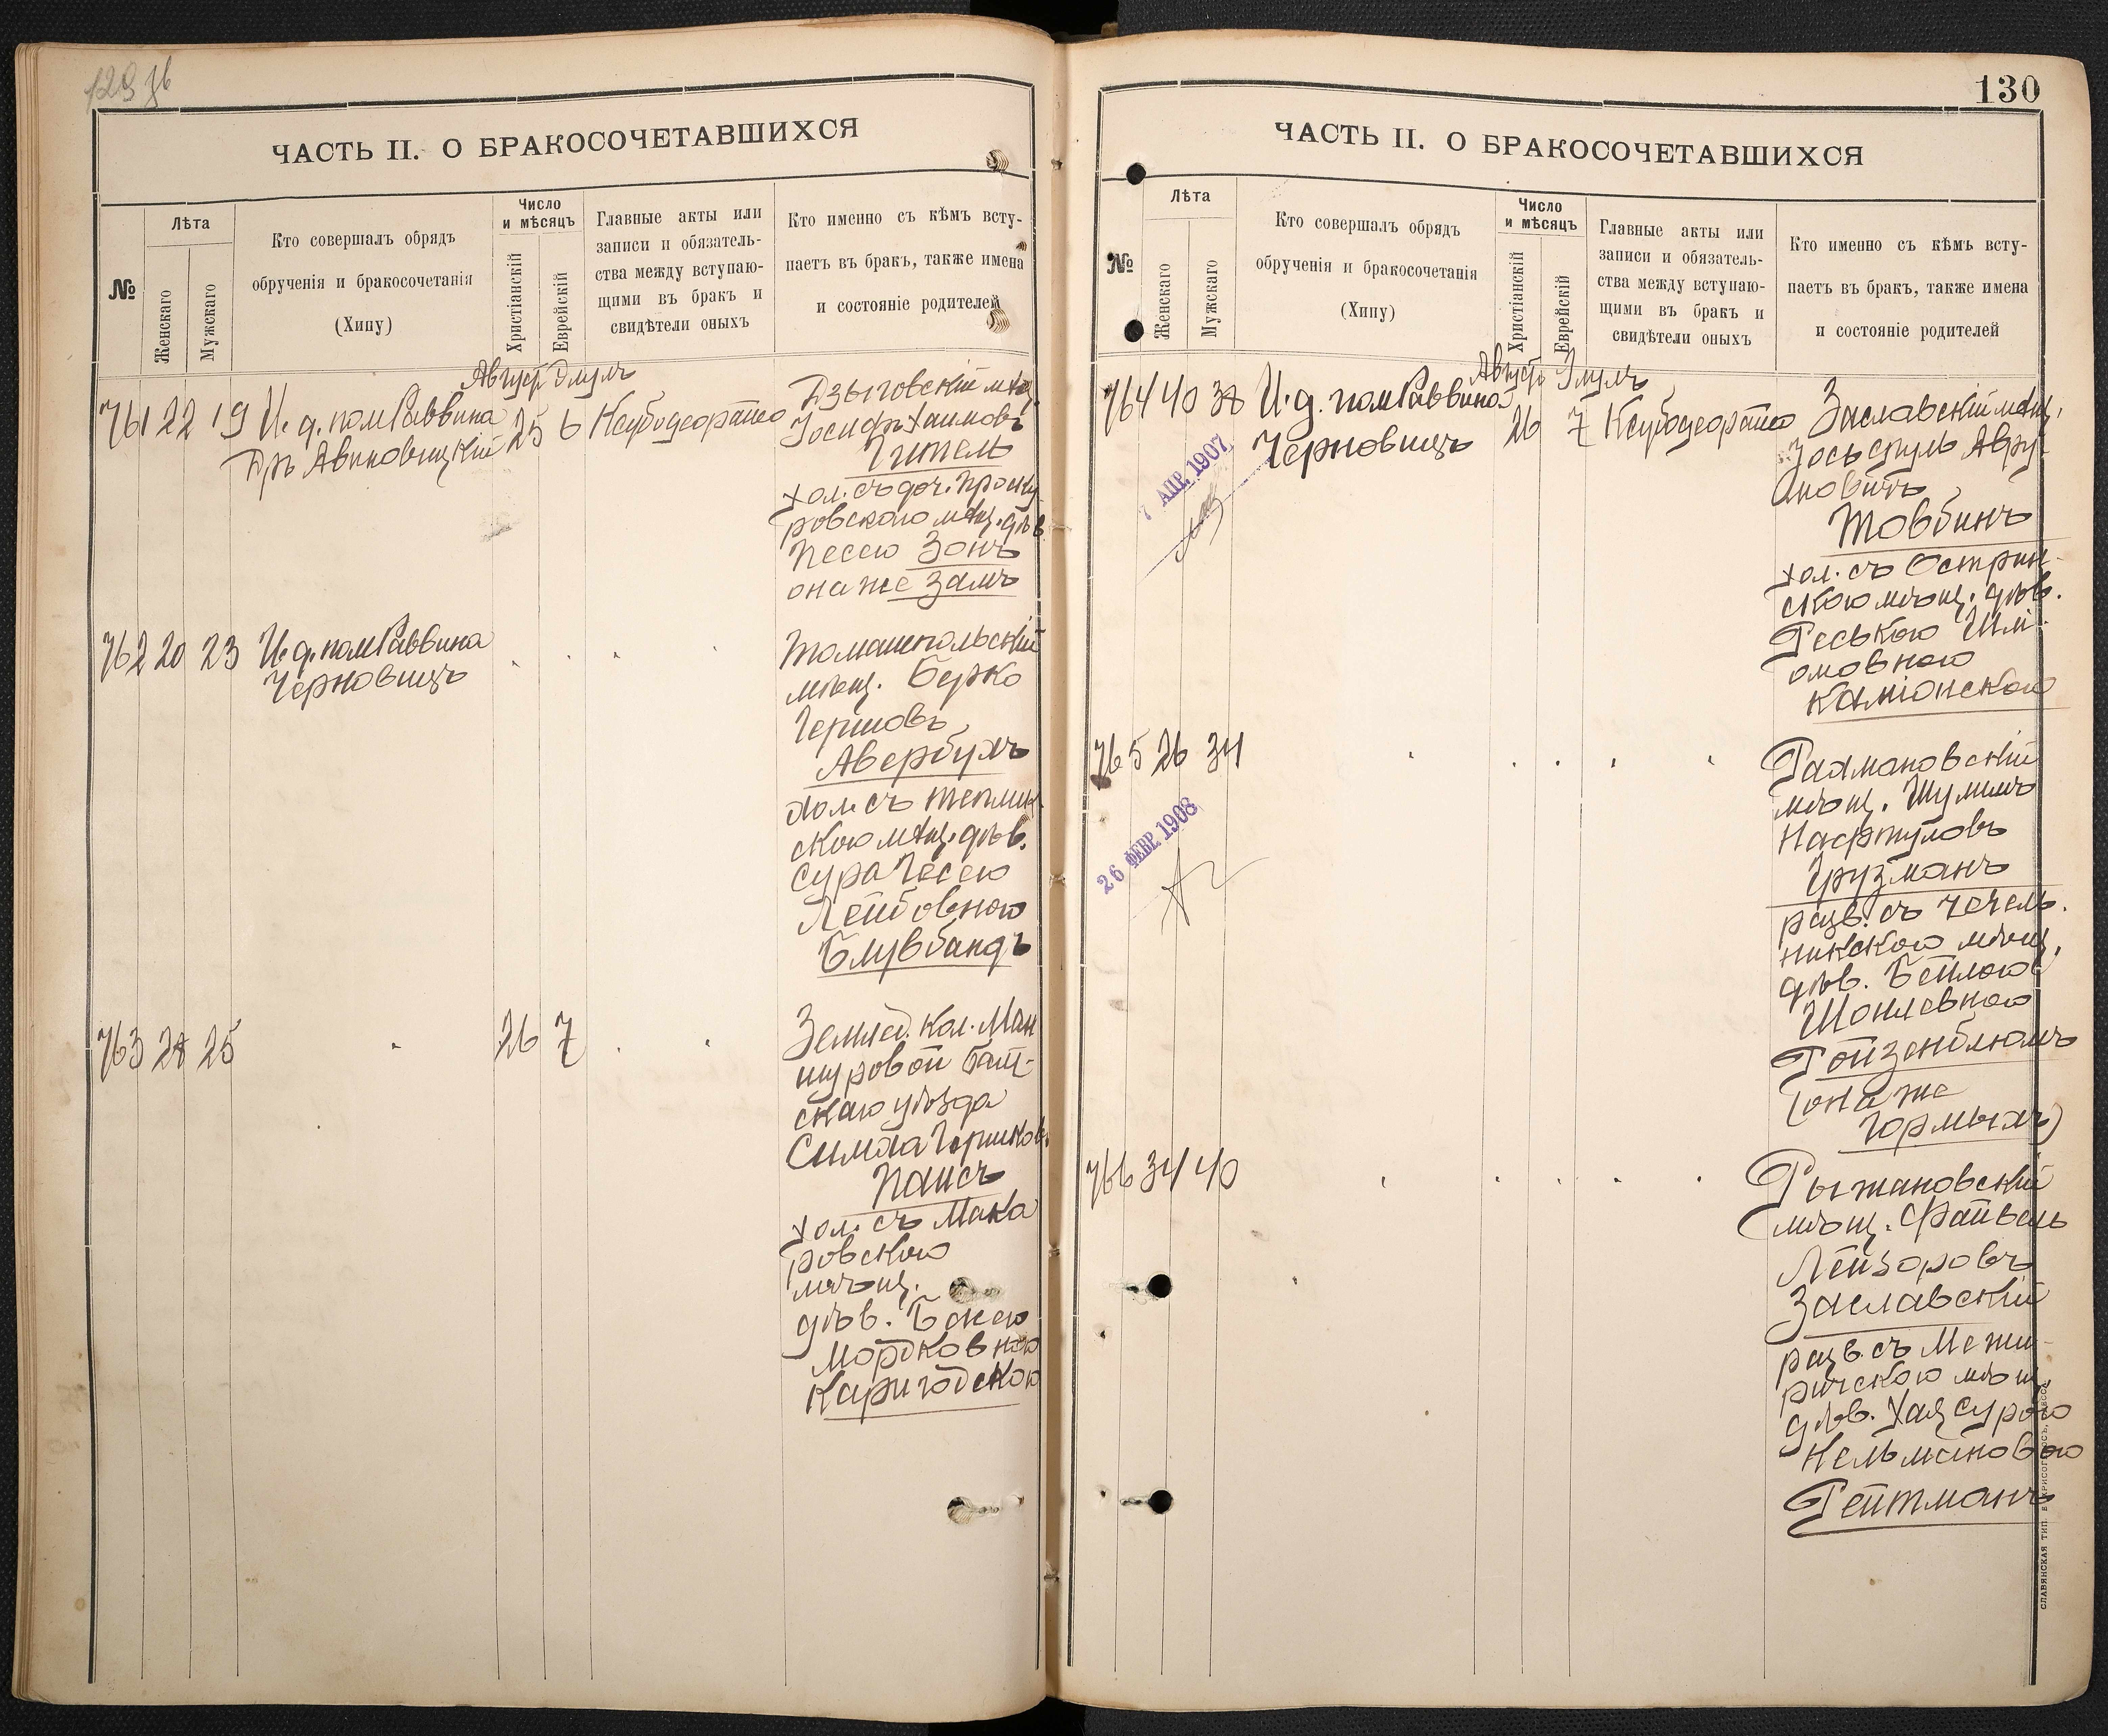 ЧАСТЬ II. О БРАКОСОЧЕТАВШИХСЯ
№
Лѣта
Женскаго
Мужскаго
Кто совершалъ обрядъ
обрученія и бракосочетанія
(Хипу)
Число
и мѣсяцъ
Христіанскій
Еврейскій
Главные акты или
записи и обязатель-
ства между вступаю-
щими въ бракъ и
свидѣтели оныхъ
Кто именно съ кѣмъ всту-
паетъ въ бракъ, также имена
и состояніе родителей
Август Элулъ
761 22 19 И. д. пом Раввина 25 6
Дръ Авиновицкій
Дзыговскій мѣщ.
Іосифъ Хаимовъ
Гитель
хол. съ доч. Проску
ровского мѣщ. дѣв.
Песею Зонъ
она же Замъ
762 20 23 И. д. пом Раввина
Черновицъ
Томашпольскій
мѣщ. Берко
Гершовъ
Авербухъ
хол. съ Теплик
скою мѣщ. дѣв.
Сура Песею
Лейбовною
Блувбандъ
763 28 25 26 7
Землед. кол. Ман
шуровой Балт-
скаго уѣзда
Симха Гершков.
Паисъ
хол. съ Мака
ровскою
мѣщ.
дѣв. Басею
Мордковною
Каригодскою
130
ЧАСТЬ II. О БРАКОСОЧЕТАВШИХСЯ
№
Лѣта
Женскаго
Мужскаго
Кто совершалъ обрядъ
обрученія и бракосочетанія
(Хипу)
Число
и мѣсяцъ
Христіанскій
Еврейскій
Главные акты или
записи и обязатель-
ства между вступаю-
щими въ бракъ и
свидѣтели оныхъ
Кто именно съ кѣмъ всту-
паетъ въ бракъ, также имена
и состояніе родителей
Август Элулъ
764 40 38 И. д. пом Раввина 26 7
Черновицъ
7 АПР. 1907
Заславскій мѣщ.
Іось Сруль Авру
мовичъ
Товбинъ
хол. съ Острин-
скою мѣщ. дѣв.
Реською Шлі-
омовною
Каміонскою
765 26 34
26 ФЕВР. 1908
Рахмановскій
мѣщ. Шулимъ
Нафтуловъ
Грузманъ
разв. съ Чечель-
никскою мѣщ.
дѣв. Бейлою
Шоилевною
Ройзенблюмъ
(она же
Гормыхъ)
766 34 40
Рыжановскій
мѣщ. Файвель
Лейзоровъ
Заславскій
разв. съ Межи-
ричскою мѣщ.
дѣв. Хая Сурою
Кельмановою
Рейтманъ